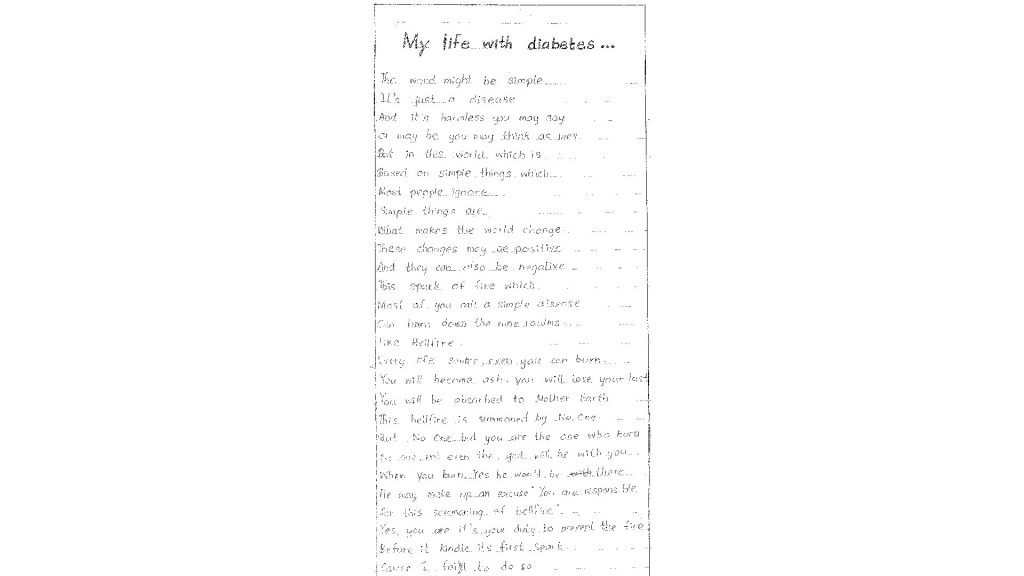 My life with diabetes...
The word might be simple......
It's just a disease
And it's harmless you may say
or may be you may think as well
But in this world which is...
Based on simple things which...
Most people ignore.....
Simple things are..
What makes the world change
These changes may be positive
And they can also be negative
This spark of fire which
Most of you call a simple disease
Can burn down the nine realms...
Like Hellfire
Every life even you can burn...
You will become ash, you will lose your last
You will be absorbed to Mother Earth
This hellfire is summoned by No One
But No One but you are the one who burn
No one not even the god will be with you...
When you burn. Yes he won't be there...
He may make up an excuse "You are responsible
for this summoning of hellfire".
Yes, you are it's your duty to prevent the fire
Before it kindle its first spark
Cause I fail to do so